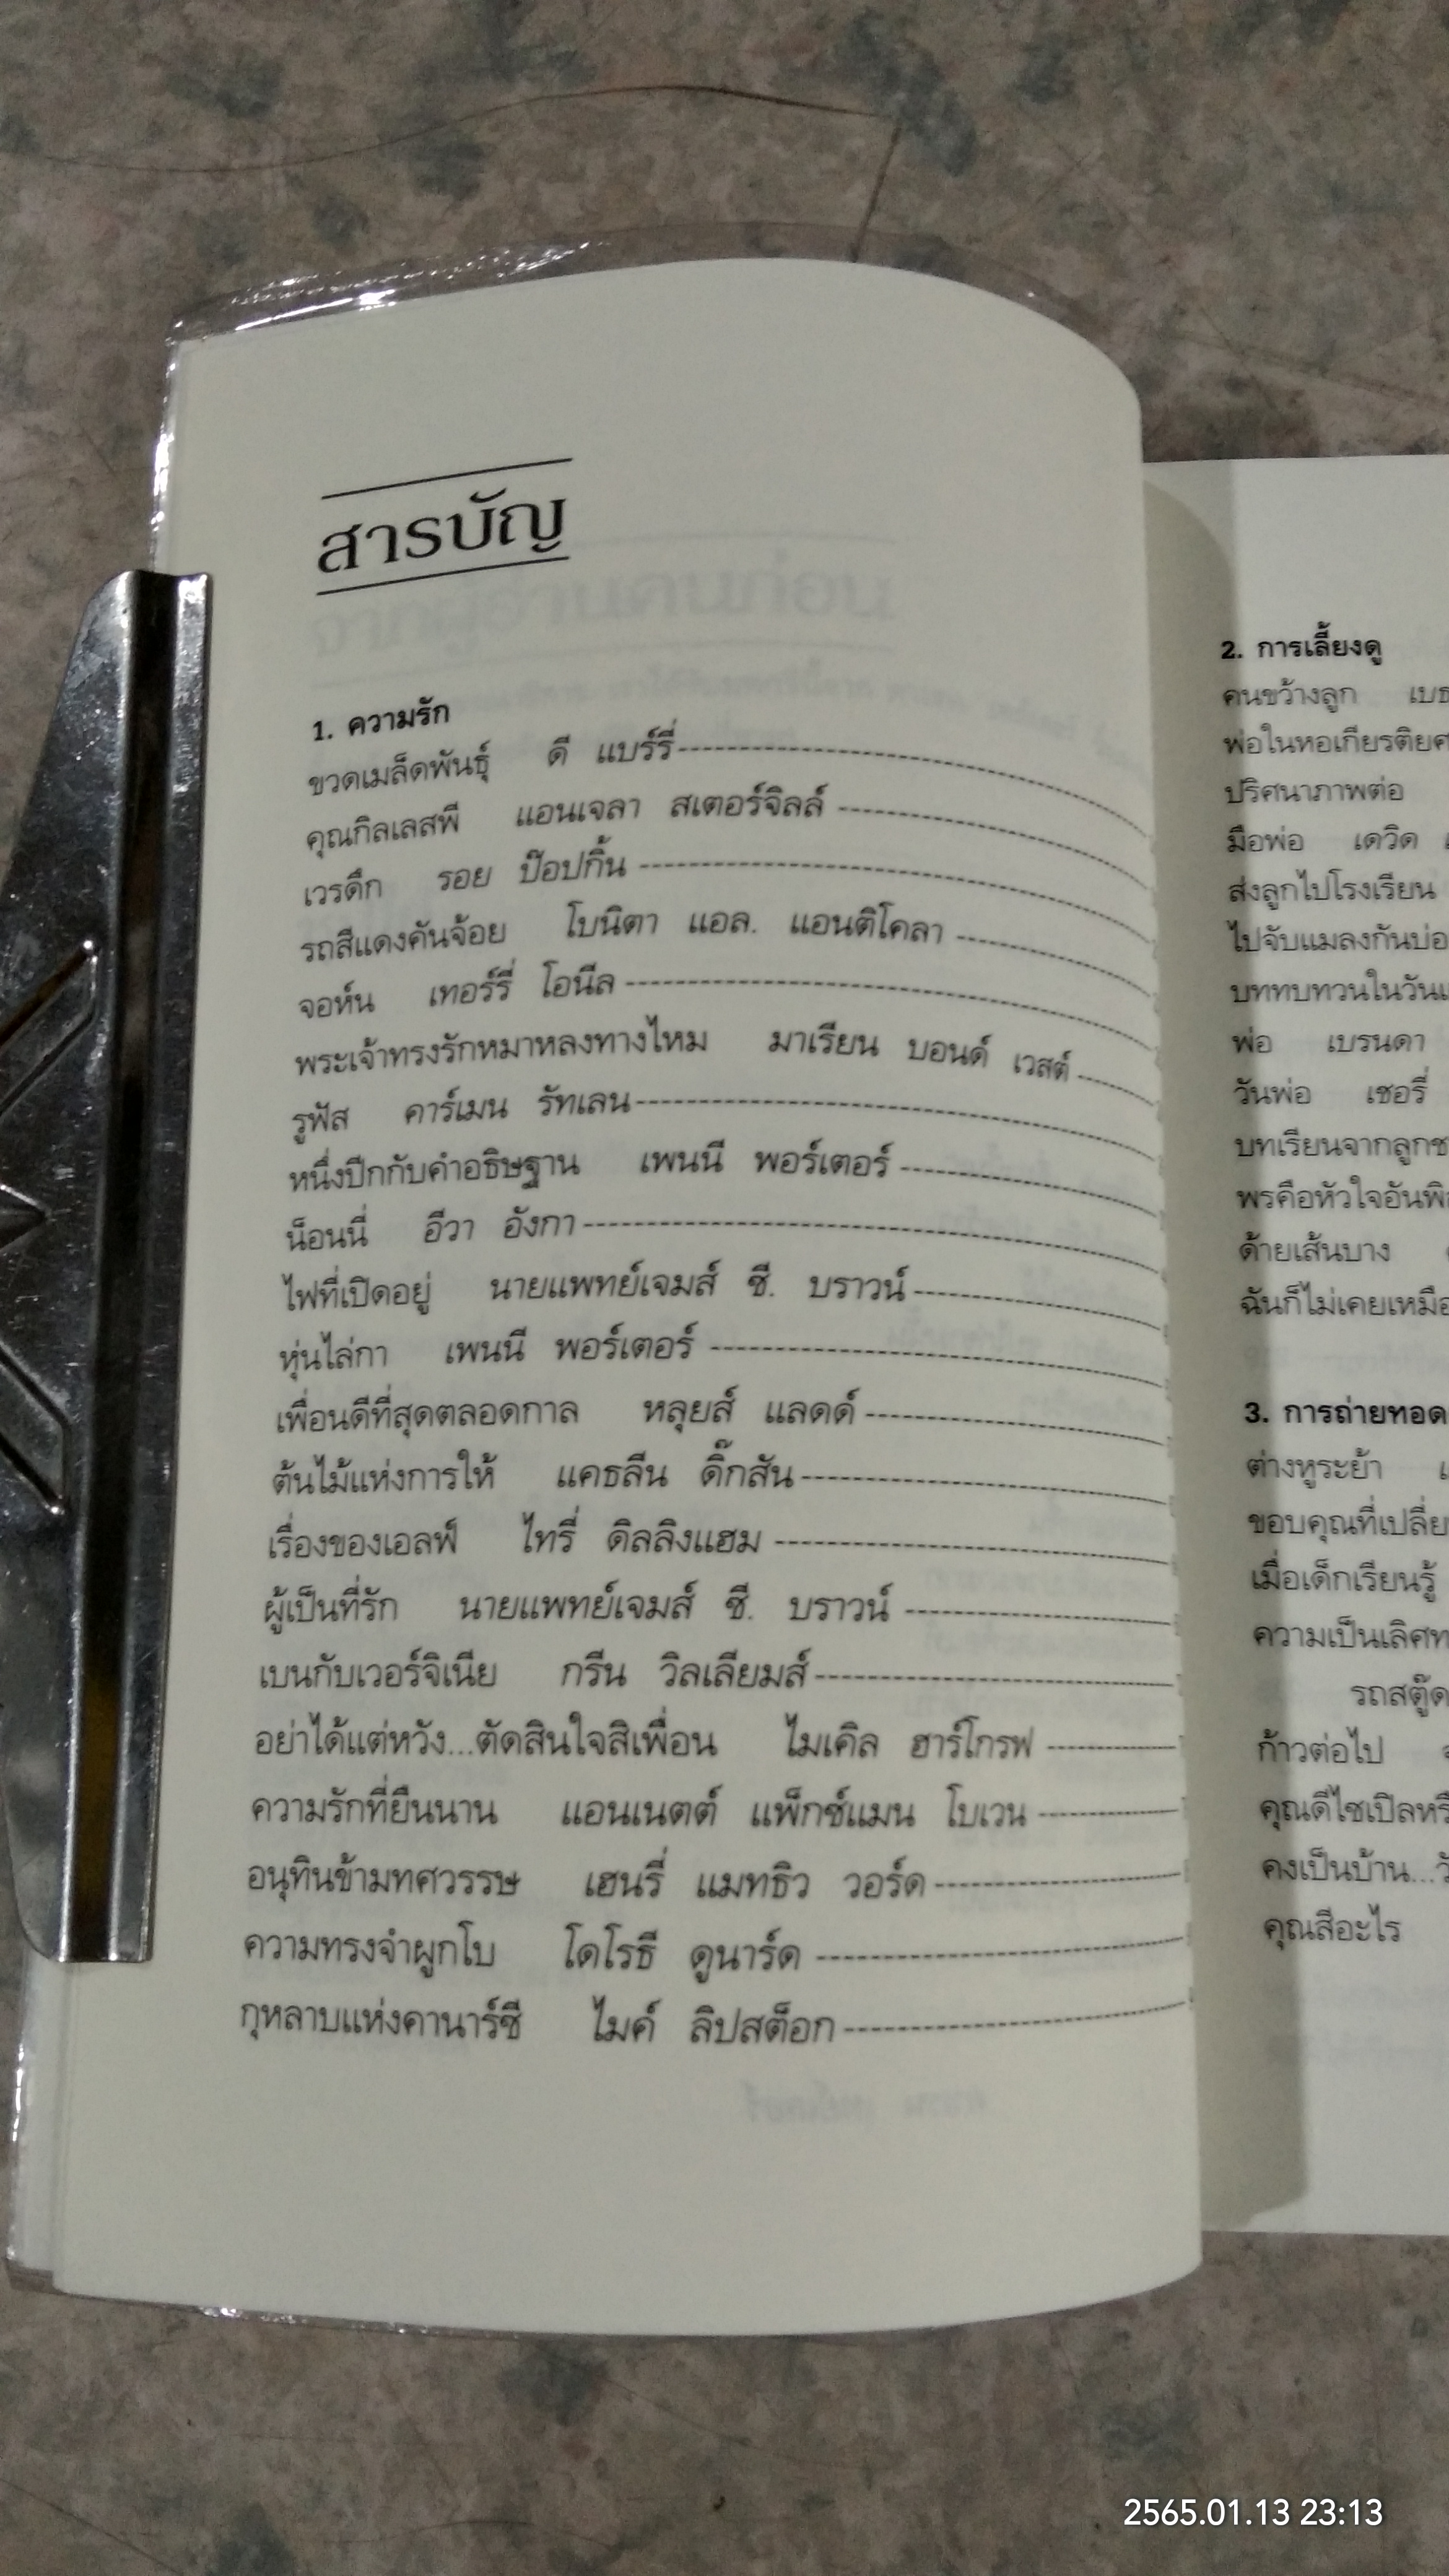 สารบัญ
1. ความรัก
ขวดเมล็ดพันธุ์ ดี แบร์รี่
คุณกิลเลสพี แอนเจลา สเตอร์จิลล์
เวรดึก รอย ป๊อปกิ้น
รถสีแดงคันจ้อย โบนิตา แอล. แอนติโคลา
จอห์น เทอร์รี่ โอนีล
พระเจ้าทรงรักหมาหลงทางไหม มาเรียน บอนด์ เวสต์
รูฟัส คาร์เมน รัทเลน
หนึ่งปีกกับคำอธิษฐาน เพนนี พอร์เตอร์
น็อนนี่ อีวา อังกา
ไฟที่เปิดอยู่ นายแพทย์เจมส์ ซี. บราวน์
หุ่นไล่กา เพนนี พอร์เตอร์
เพื่อนดีที่สุดตลอดกาล หลุยส์ แลดด์
ต้นไม้แห่งการให้ แคธลีน ดิ๊กสัน
เรื่องของเอลฟ์ ไทรี่ ดิลลิงแฮม
ผู้เป็นที่รัก นายแพทย์เจมส์ ซี. บราวน์
เบนกับเวอร์จิเนีย กรีน วิลเลียมส์
อย่าได้แต่หวัง...ตัดสินใจสิเพื่อน ไมเคิล ฮาร์โกรฟ
ความรักที่ยืนนาน แอนเนตต์ แพ็กซ์แมน โบเวน
อนุทินข้ามทศวรรษ เฮนรี่ แมทธิว วอร์ด
ความทรงจำผูกโบ โดโรธี ดูนาร์ด
กุหลาบแห่งคานาร์ซี ไมค์ ลิปสต็อก
2. การเลี้ยงดู
คนขว้างลูก
พ่อในหอเกียรติยศ
ปริศนาภาพต่อ
มือพ่อ เดวิด
ส่งลูกไปโรงเรียน
ไปจับแมลงกันบ่อ
บททบทวนในวัน
พ่อ เบรนดา
วันพ่อ เชอรี่
บทเรียนจากลูก
พรคือหัวใจอัน
ด้ายเส้นบาง
ฉันก็ไม่เคยเหมือ
3. การถ่ายทอด
ต่างหูระย้า
ขอบคุณที่เปลี่ย
เมื่อเด็กเรียนรู้
ความเป็นเลิศ
รถสตู๊ด
ก้าวต่อไป
คุณดีไซเปิล
คงเป็นบ้าน...
คุณสีอะไร
2565.01.13 23:13